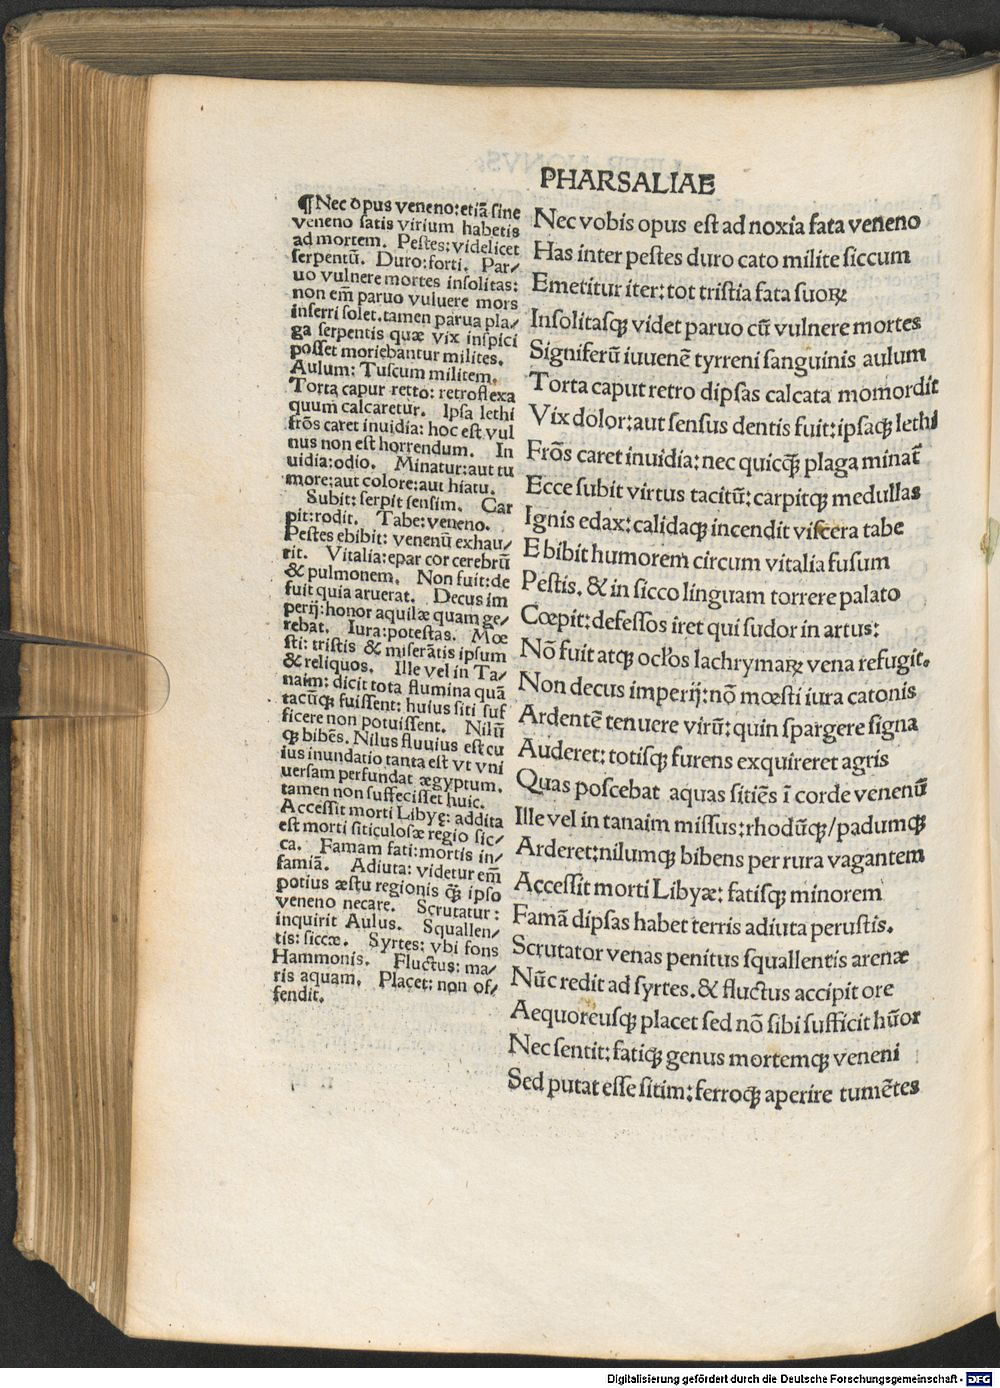 PHARSALIAE
¶Nec opus veneno:etiã sine
veneno satis virium habetis
ad mortem. Pestes:videlicet
serpentũ. Duro:forti. Par/
uo vulnere mortes insolitas:
non em̃ paruo vuluere mors
inferri solet.tamen parua pla/
ga serpentis quæ vix inspici
posset moriebantur milites.
Aulum: Tuscum militem.
Torta capur retto: retroflexa
quum calcaretur. Ipsa lethi
frõs caret inuidia: hoc est vul
nus non est horrendum. In
uidia:odio. Minatur:aut tu
more:aut colore:aut hiatu.
Subit: serpit sensim. Car
pit:rodit. Tabe:veneno.
Pestes ebibit: venenũ exhau/
rit. Vitalia:epar cor cerebrũ
& pulmonem. Non fuit:de
fuit quia aruerat. Decus im
perij:honor aquilæ quam ge/
rebat. Iura:potestas. Mœ
sti: tristis & miserãtis ipsum
& reliquos. Ille vel in Ta/
naim: dicit tota flumina quã
tacũqꝫ fuissent: huius siti suf
ficere non potuissent. Nilũ
qꝫ bibẽs. Nilus fluuius est cu
ius inundatio tanta est vt vni
uersam perfundat ægyptum.
tamen non suffecisset huic.
Accessit morti Libyę: addita
est morti siticulosæ regio sic/
ca. Famam fati:mortis in/
famiã. Adiuta: videtur em̃
potius æstu regionis qꝫ̃ ipso
veneno necare. Scrutatur:
inquirit Aulus. Squallen/
tis: siccæ. Syrtes: vbi fons
Hammonis. Fluctus: ma/
ris aquam. Placet: non of/
fendit.
Nec vobis opus est ad noxia fata veneno
Has inter pestes duro cato milite siccum
Emetitur iter:tot tristia fata suoꝝ
Insolitasqꝫ videt paruo cũ vulnere mortes
Signiferũ iuuenẽ tyrreni sanguinis aulum
Torta caput retro dipsas calcata momordit
Vix dolor:aut sensus dentis fuit:ipsaqꝫ lethi
Frõs caret inuidia:nec quicqꝫ̃ plaga minat̃
Ecce subit virtus tacitũ:carpitqꝫ medullas
Ignis edax:calidaqꝫ incendit viscera tabe
Ebibit humorem circum vitalia fusum
Pestis. & in sicco linguam torrere palato
Cœpit:defessos iret qui sudor in artus:
Nõ fuit atqꝫ oclꝰos lachrymaꝝ vena refugit.
Non decus imperij:nõ mœsti iura catonis
Ardentẽ tenuere virũ: quin spargere signa
Auderet: totisqꝫ furens exquireret agris
Quas poscebat aquas sitiẽs ĩ corde venenũ
Ille vel in tanaim missus:rhodũqꝫ/padumqꝫ
Arderet:nilumqꝫ bibens per rura vagantem
Accessit morti Libyæ: fatisqꝫ minorem
Famã dipsas habet terris adiuta perustis.
Scrutator venas penitus squallentis arenæ
Nũc redit ad syrtes. & fluctus accipit ore
Aequoreusqꝫ placet sed nõ sibi sufficit hũor
Nec sentit: fatiqꝫ genus mortemqꝫ veneni
Sed putat esse sitim:ferroqꝫ aperire tumẽtes
Digitalisierung gefördert durch die Deutsche Forschungsgemeinschaft - DFG